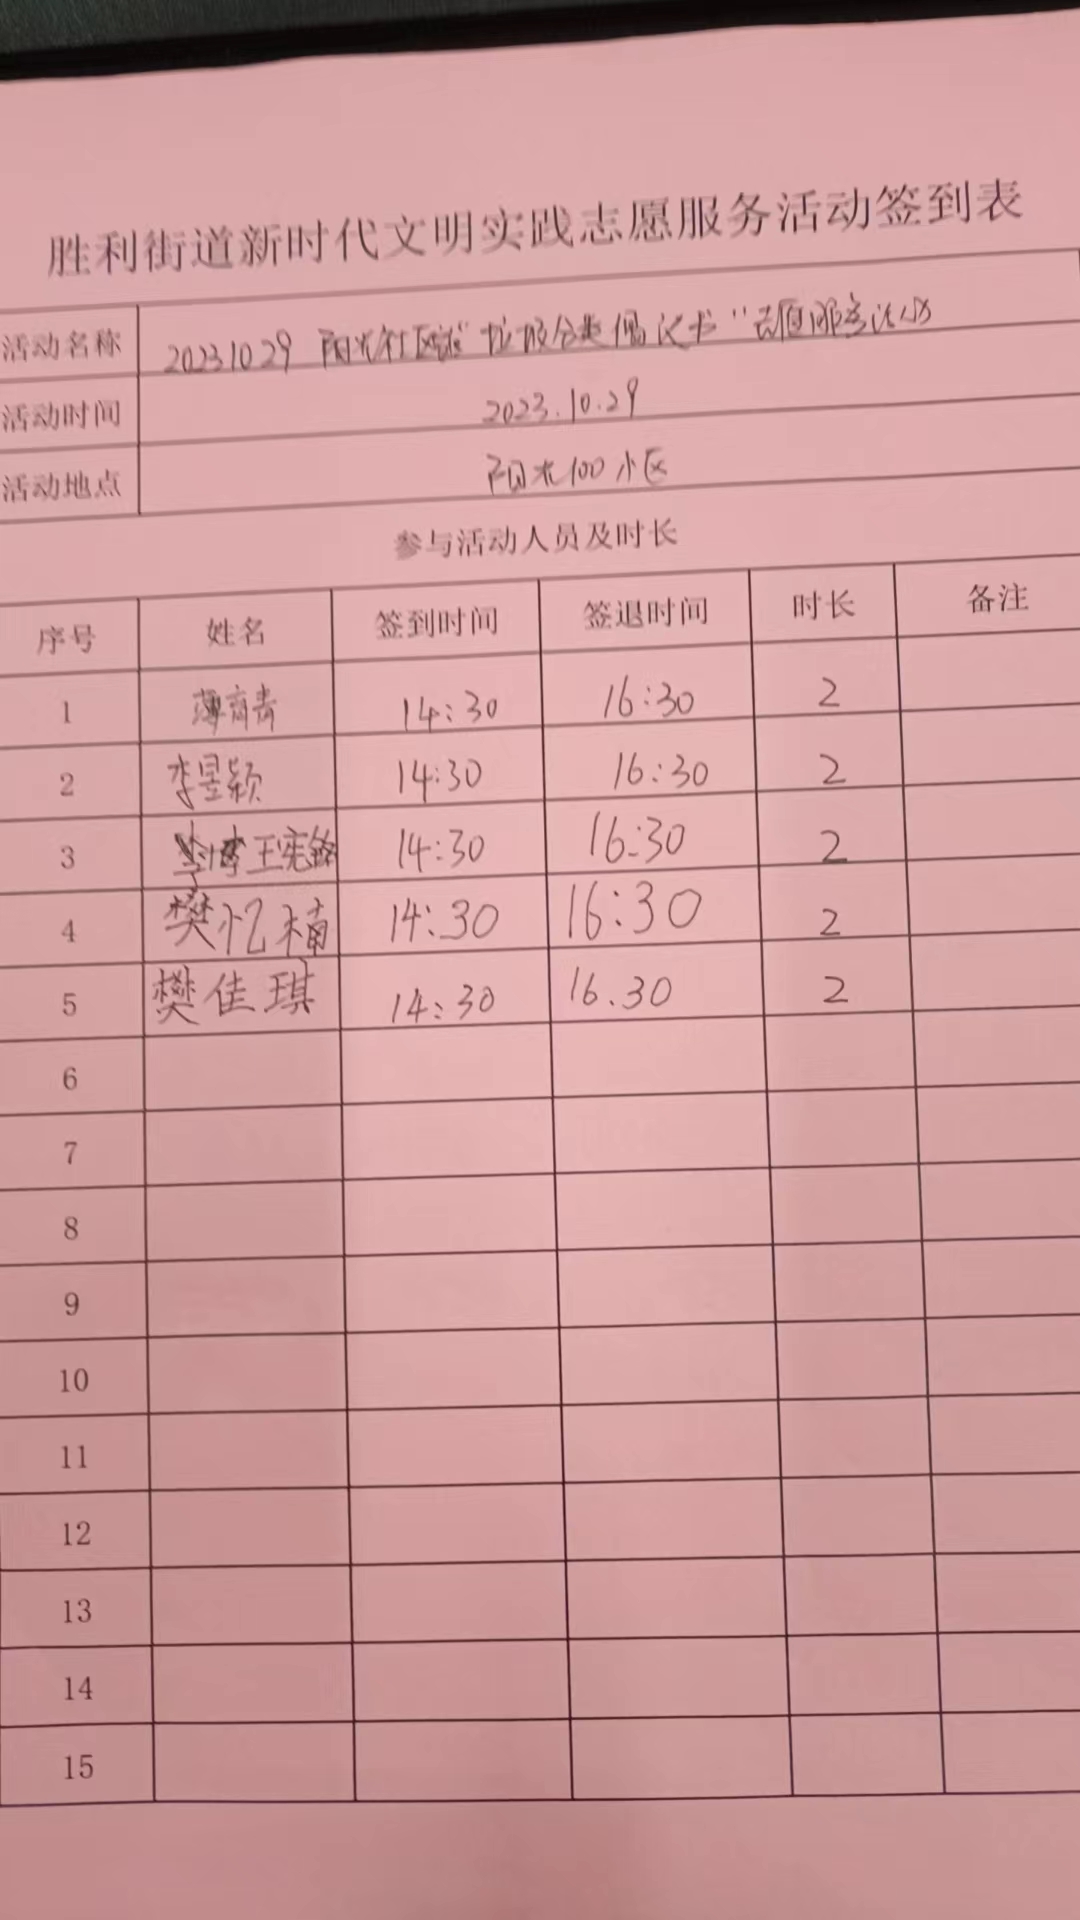 胜利街道新时代文明实践志愿服务活动签到表
活动名称 20231029 阳光社区 "垃圾分类倡议书"志愿服务活动
活动时间 2023.10.29
活动地点 阳光100小区
参与活动人员及时长
序号 姓名 签到时间 签退时间 时长 备注
1 薄 青 14:30 16:30 2
2 李昱颖 14:30 16:30 2
3 王宪锋 14:30 16:30 2
4 樊忆楠 14:30 16:30 2
5 樊佳琪 14:30 16.30 2
6
7
8
9
10
11
12
13
14
15